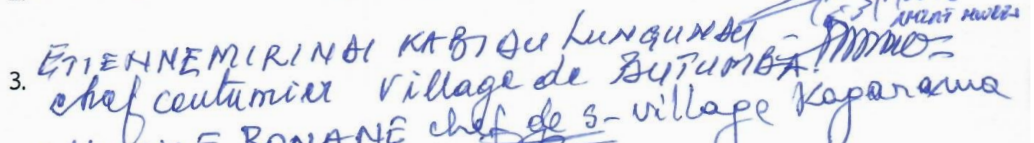 3. ETIENNE MIRINDI KABIDU LUNGUNDU
chef coutumier Village de BUTUMBA
BONANE chef de s- village Kagarama